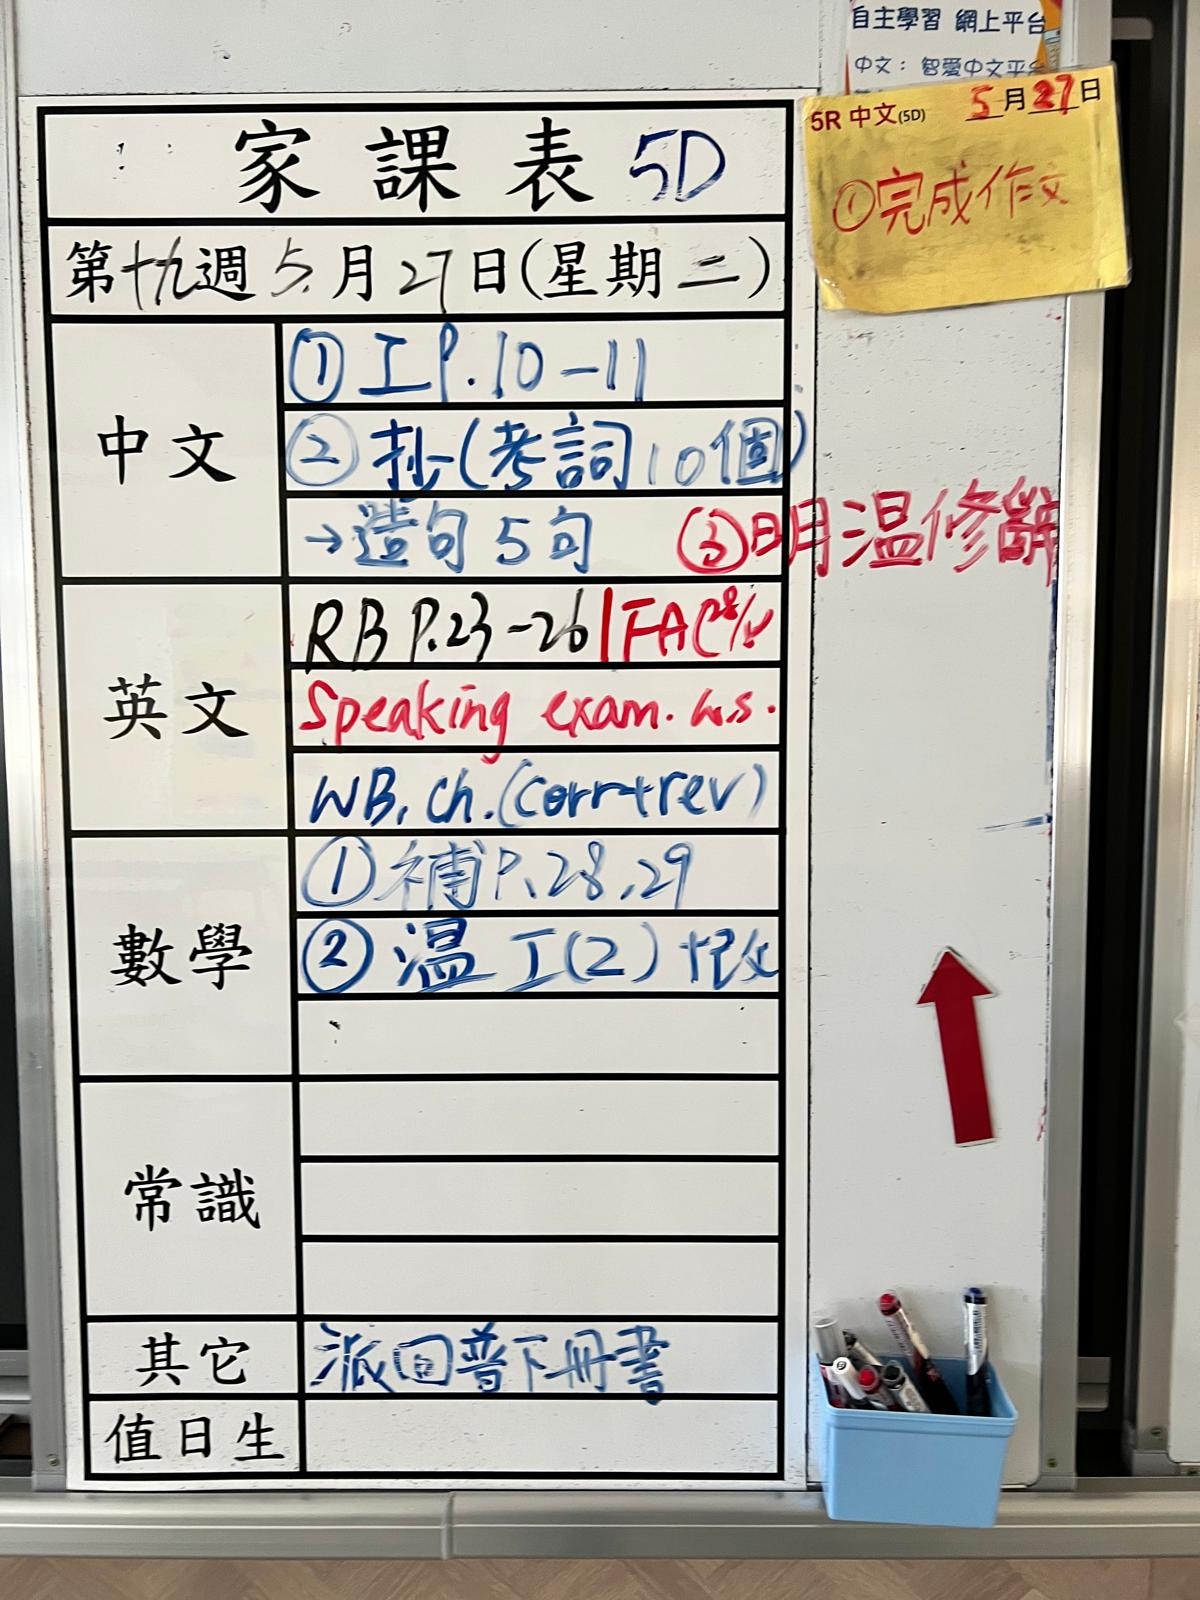 自主學習 網上平台
中文：智愛中文平台
5R 中文(5D) 5月27日
①完成作文
家課表 5D
第十九週 5月27日(星期二)
中文
①工P.10-11
②抄(考詞10個)
→造句5句 ③明温修辭
英文
RB P.23-26 | FA(28/5
Speaking exam. w.s.
WB, ch.(corr+rev)
數學
①補P.28,29
②温工(2)
常識
其它
派回普下冊書
值日生